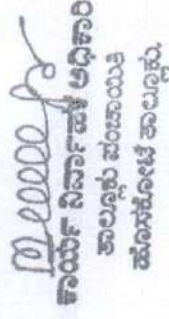 ಕಾರ್ಯ ನಿರ್ವಾಹಕ ಅಧಿಕಾರಿ
ತಾಲ್ಲೂಕು ಪಂಚಾಯಿತಿ
ಹೊಸಕೋಟೆ ತಾಲ್ಲೂಕು.